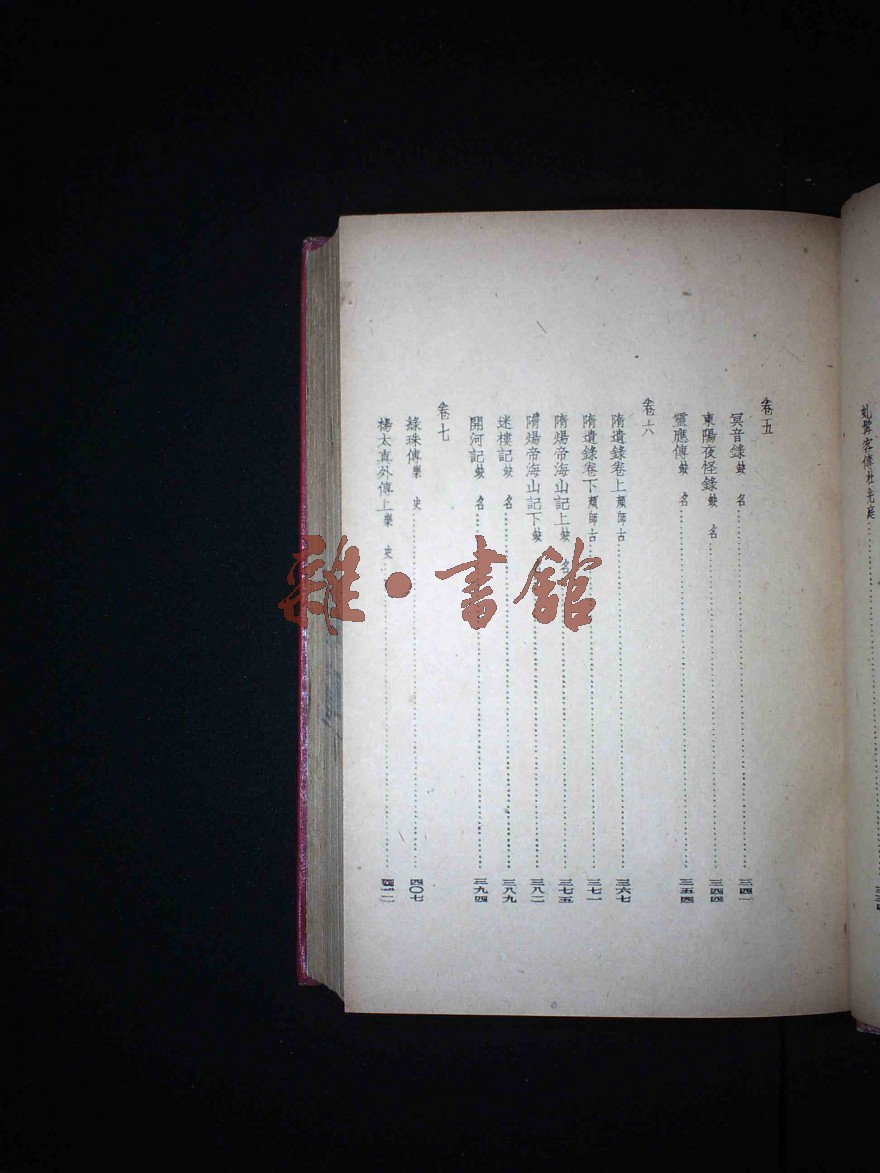 虬髯客傳杜光庭
卷五
冥音錄缺 名 三四一
東陽夜怪錄缺 名 三四四
靈應傳缺 名 三五四
卷六
隋遺錄卷上顏師古 三六七
隋遺錄卷下顏師古 三七一
隋煬帝海山記上缺 名 三七五
隋煬帝海山記下缺 三八二
迷樓記缺 名 三八九
開河記缺 名 三九四
卷七
綠珠傳樂 史 四〇七
楊太真外傳上樂 史
雜·書館